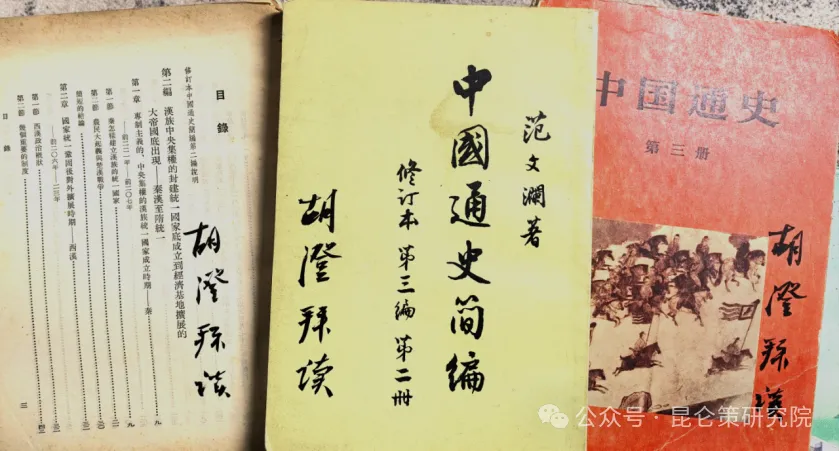 目錄
修訂本中國通史簡編第二編說明
第二編 漢族中央集權的封建統一國家底成立到經濟基地擴展的
大帝國底出現——秦漢至隋統一
第一章 專制主義的、中央集權的漢族統一國家成立時期——秦
——前二二一年——前二〇七年
第一節 秦怎樣建立漢族的統一國家
第二節 農民大起義與楚漢戰爭
簡短的結論
第二章 國家統一鞏固後對外擴展時期——西漢
——前二〇六年——二三年
第一節 西漢政治概狀
第二節 幾個重要的制度
目錄
三
胡澄拜读
范文瀾著
中國通史简编
修订本 第三编 第二册
胡澄拜读
中国通史
第三册
胡澄拜读
公众号·昆仑策研究院